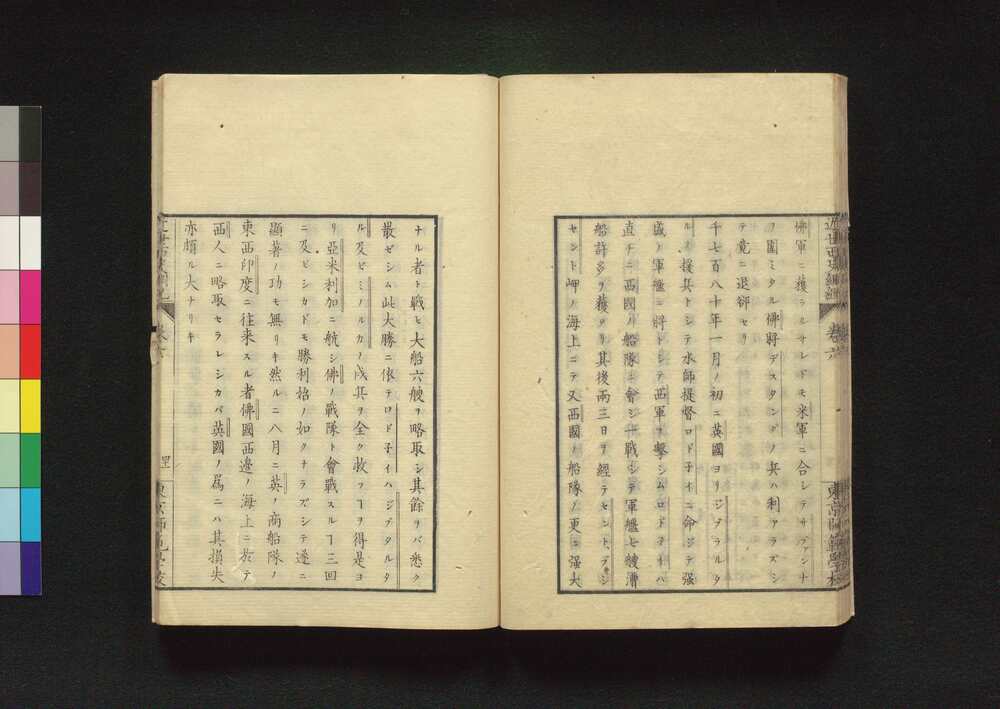 佛軍ニ獲ラルサレドモ米軍ニ合シテサヴァンナ
ヲ圍ミタル佛將デスタンドノ兵ハ利アラズシ
テ竟ニ退卻セリ
千七百八十年一月ノ初ニ英國ヨリジブラルタ
ルノ援兵トシテ水師提督ロドネイニ命ジテ强
盛ノ軍艦ニ將トシテ西軍ヲ擊シムロドネイハ
直チニ西國ノ船隊ニ會シ一戰シテ軍艦七艘漕
船許多ヲ獲タリ其後兩三日ヲ經テセントブシ
セント岬ノ海上ニテ又西國ノ船隊ノ更ニ强大
近世西史綱紀
卷六
東京師範學校
ナル者ト戰ヒ大船六艘ヲ略取シ其餘ヲバ悉ク
最ゼシム此大勝ニ依テロドネイハジブラルタ
ル及ビミノルカノ戍兵ヲ全ク救フヿヲ得是ヨ
リ亞米利加ニ航シ佛ノ戰隊ト會戰スルヿ三回
ニ及ビシカドモ勝利始ノ如クナラズシテ遂ニ
顯著ノ功モ無リキ然ルニ八月ニ英ノ商船隊ノ
東西印度ニ往來スル者佛國西邊ノ海上ニ於テ
西人ニ略取セラレシカバ英國ノ爲ニハ其損失
亦頗ル大ナリキ